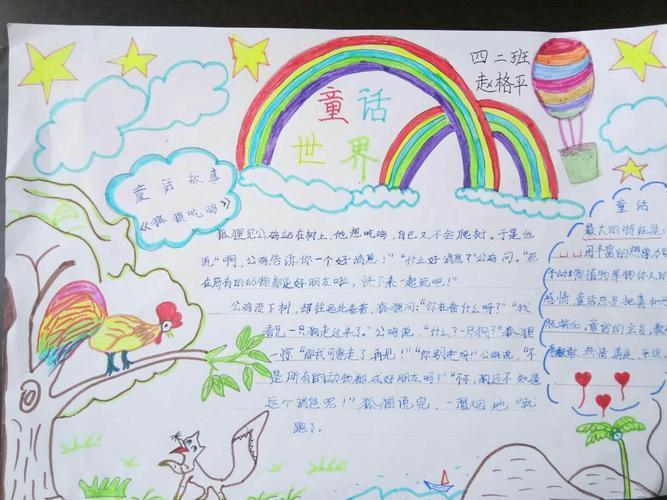 四二班
赵格平
童话
世界
童话故事
《狐狸吃鸡》
狐狸见公鸡站在树上，他想吃鸡，自己又不会爬树。于是他
说“啊，公鸡告诉你一个好消息！”“什么好消息？”公鸡问。“现
在所有的动物都是好朋友啦，快下来一起玩吧！”
公鸡没下树，却往远处看看，狐狸问：“你在看什么呀？”“我
看见一只狗走过来了。”公鸡说。“什么？一只狗？”狐狸
一惊“那我可要走了再见！”“你别走呀！”公鸡说，“不
是所有的动物都成好朋友吗？”“不，狗还不知道
这个消息呢！”狐狸说完，一溜烟地“就
跑了。
童话
最大的特征是：
用丰富的想象力
植物等物体人的
感情
童话的主旨，教